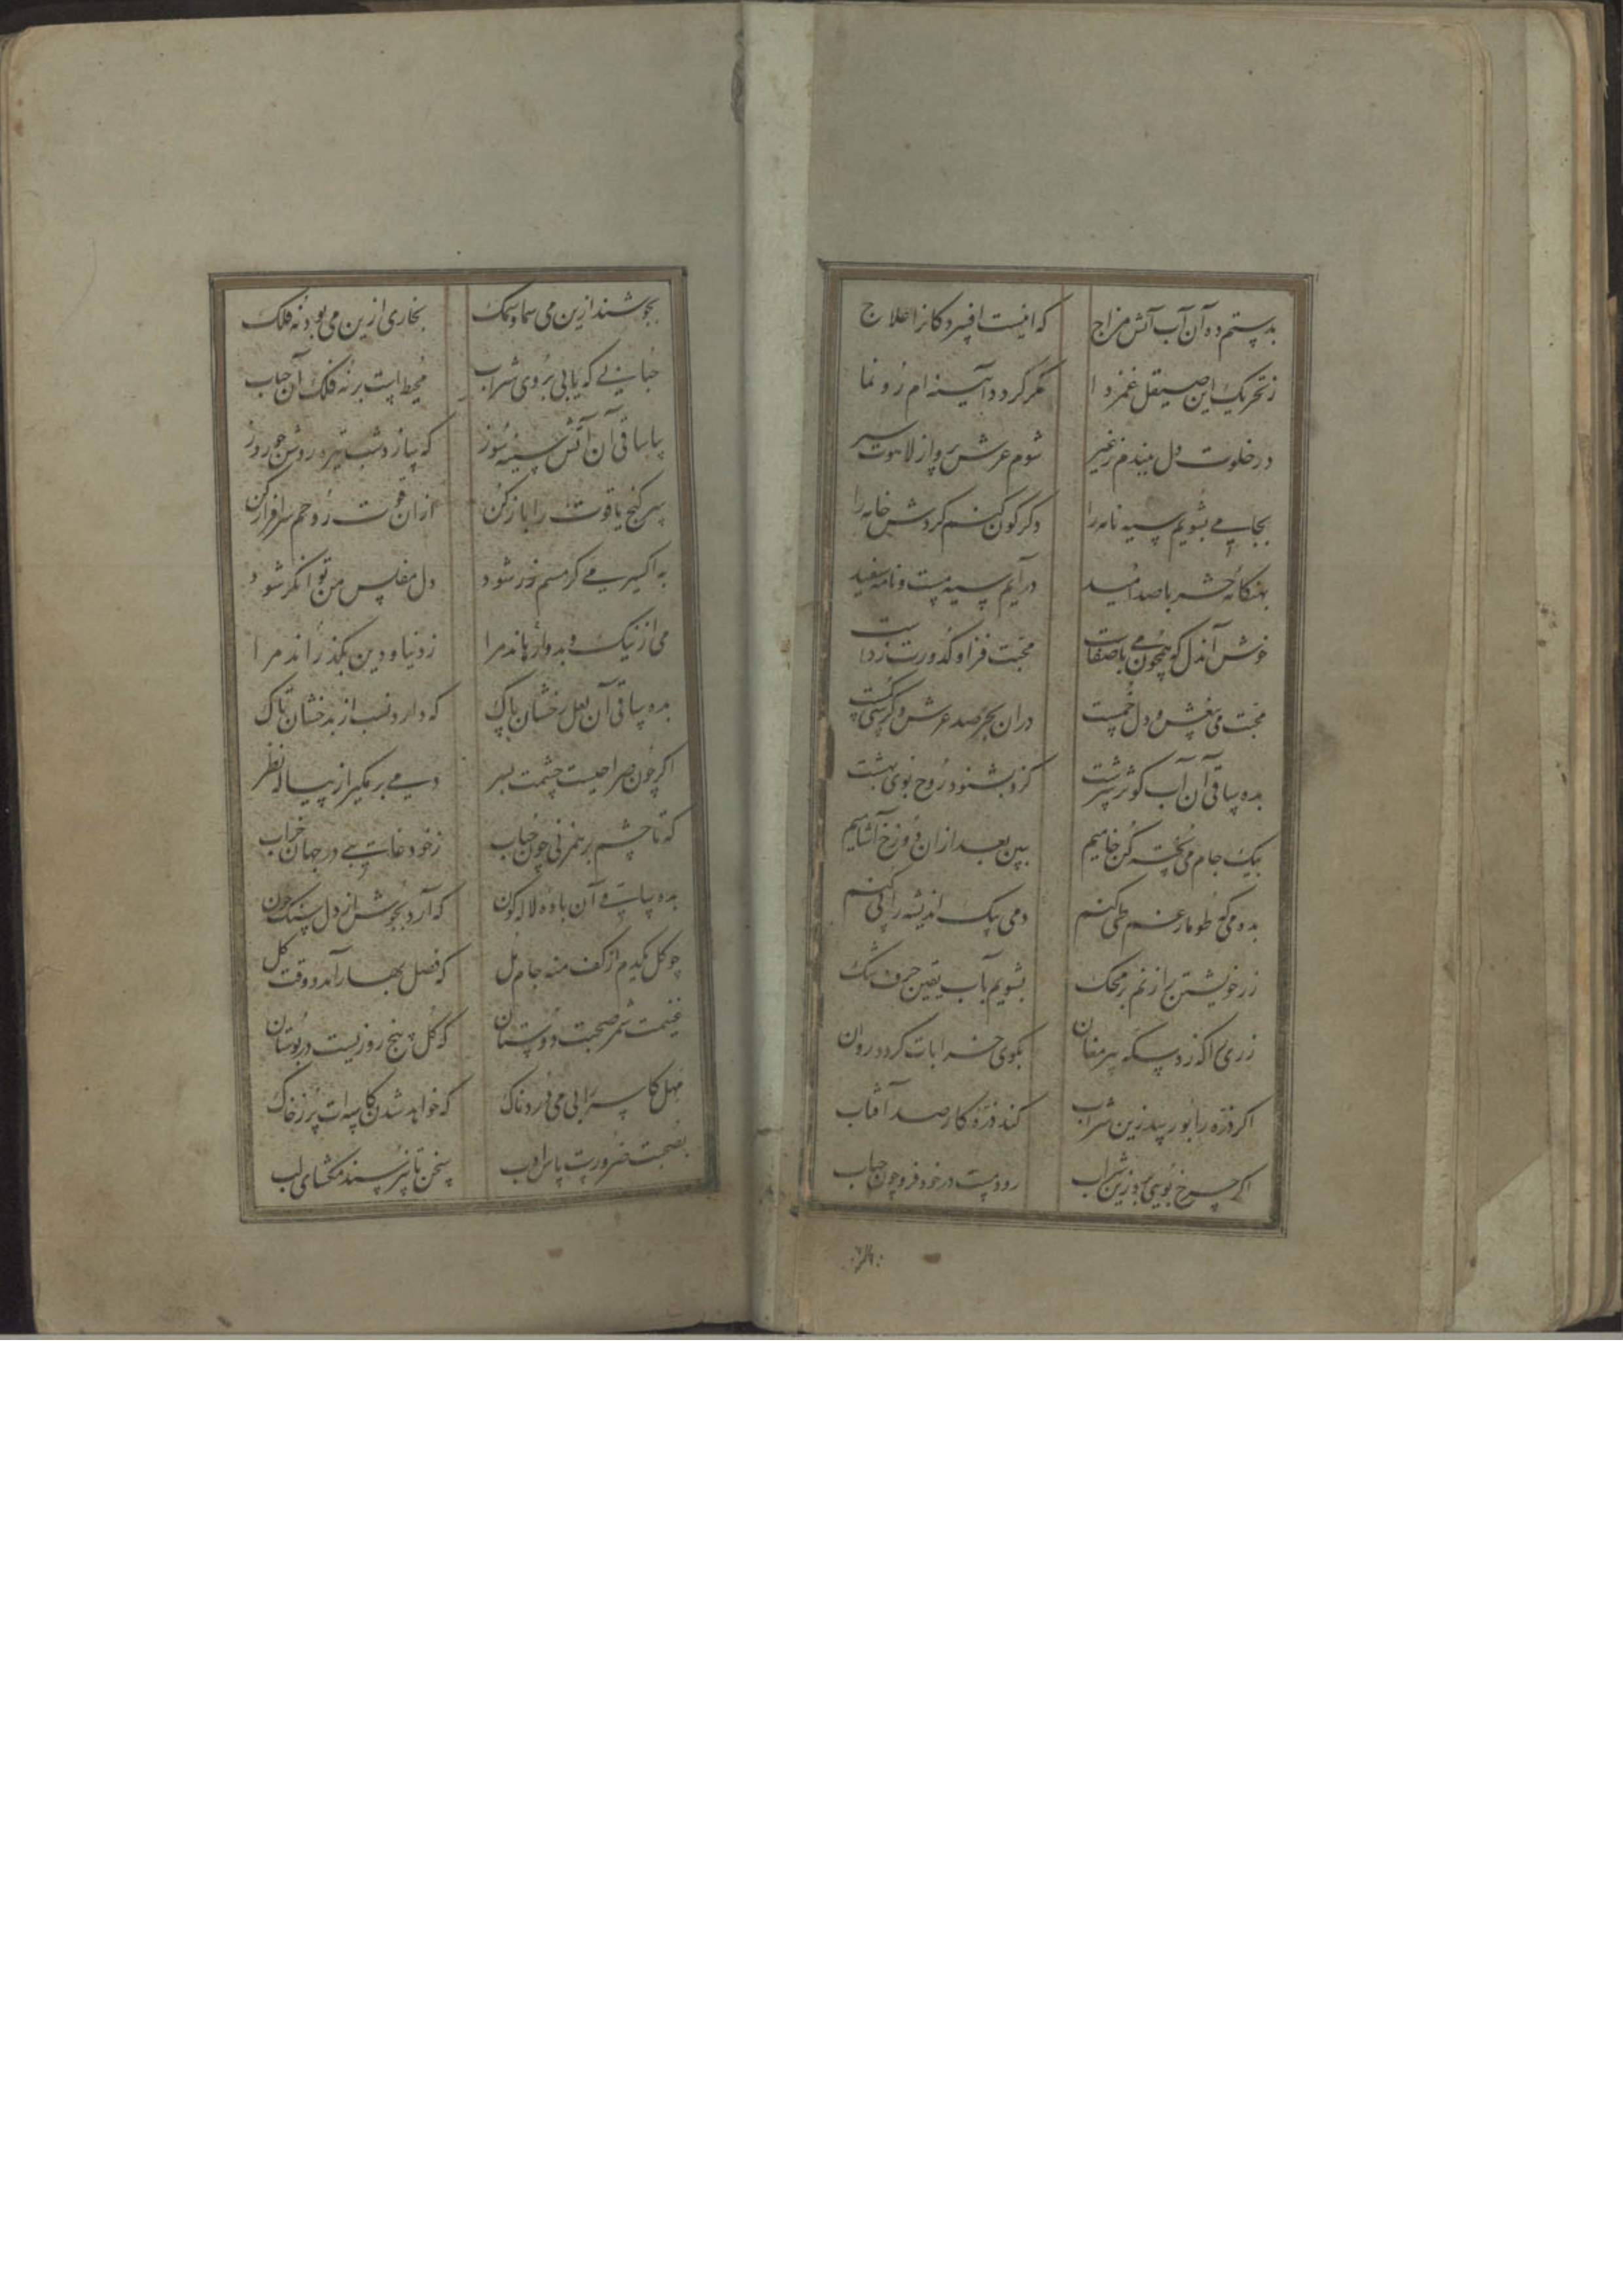 بدستم ده آن آب آتش مزاج که اینست افسردکانرا علاج
ز تحریک این صیقل غمزدا مکر کردد آیینه ام رونما
در خلوت دل ببندم ز غیر شوم عرش پرواز لاهوت سیر
بجامی بشویم سیه نامه را دکرکون کنم کردش خامه را
بهنکامه حشر با صد امید درآیم سیه مست و نامه سفید
خوش آندل که همچون می باصفات محبت فزا و کدورت زداست
محبت می بیغش و دل خمست در آن بحر صد عرش و کرسی کمست
بده ساقی آن آب کوثر سرشت کزو بشنود روح بوی بهشت
بیک جام می پخته کن خامیم ببین بعد از آن دوزخ آشامیم
بده می که طومار غم طی کنم دمی پیک اندیشه را پی کنم
زر خویشتن را زنم بر محک بشویم بآب یقین حرف شک
زری را که زد سکه پیر مغان بکوی خرابات کردد روان
اکر ذره را بو رسد زین شراب کند ذره کار صد آفتاب
اکر چرخ بویی برد زین شراب رود مست در خود فرو چون حباب
بجوشند ازین می سما و سمک بخاری ازین می بود نه فلک
حبابی که یابی بروی شراب محیط است بر نه فلک آن حباب
بیا ساقی آن آتش سینه سوز که سازد شب تیره روشن چو روز
سر کنج یاقوت را باز کن از آن قوت روحم سرافراز کن
به اکسیر می کر مسم زر شود دل مفلس من توانکر شود
می از نیک و بد وارهاند مرا ز دنیا و دین بکذراند مرا
بده ساقی آن لعل رخشان پاک که دارد نسب از بدخشان تاک
اکر چون صراحیست چشمت بسر دمی بر مکیر از پیاله نظر
که تا چشم بر هم زنی چون حباب ز خود غایبی در جهان خراب
بده ساقی آن باده لاله کون که آرد بجوش از دل سنک خون
چو کل یکدم از کف منه جام مل که فصل بهار آمد و وقت کل
غنیمت شمر صحبت دوستان که کل پنج روزیست در بوستان
مهل کاسه را بی می فرد تاک که خواهد شدن کاسه ات پر ز خاک
بصحبت ضرورست پاس ادب سخن تا نپرسند مکشای لب